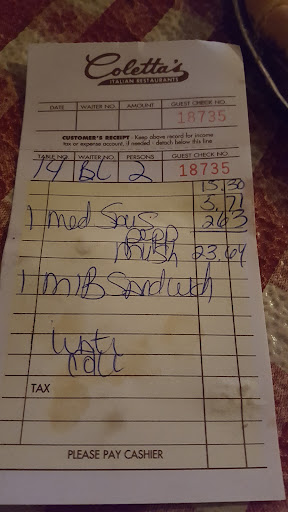 Coletta's
ITALIAN RESTAURANTS
DATE WAITER NO. AMOUNT GUEST CHECK NO.
18735
CUSTOMER'S RECEIPT - Keep above record for income
tax or expense account, if needed - detach below this line
TABLE NO. WAITER NO. PERSONS GUEST CHECK NO.
14 BC 2 18735
15.30
5.71
1 med Saus 2.63
pepp
mush 23.64
1 m/B Sandwich
TAX
PLEASE PAY CASHIER